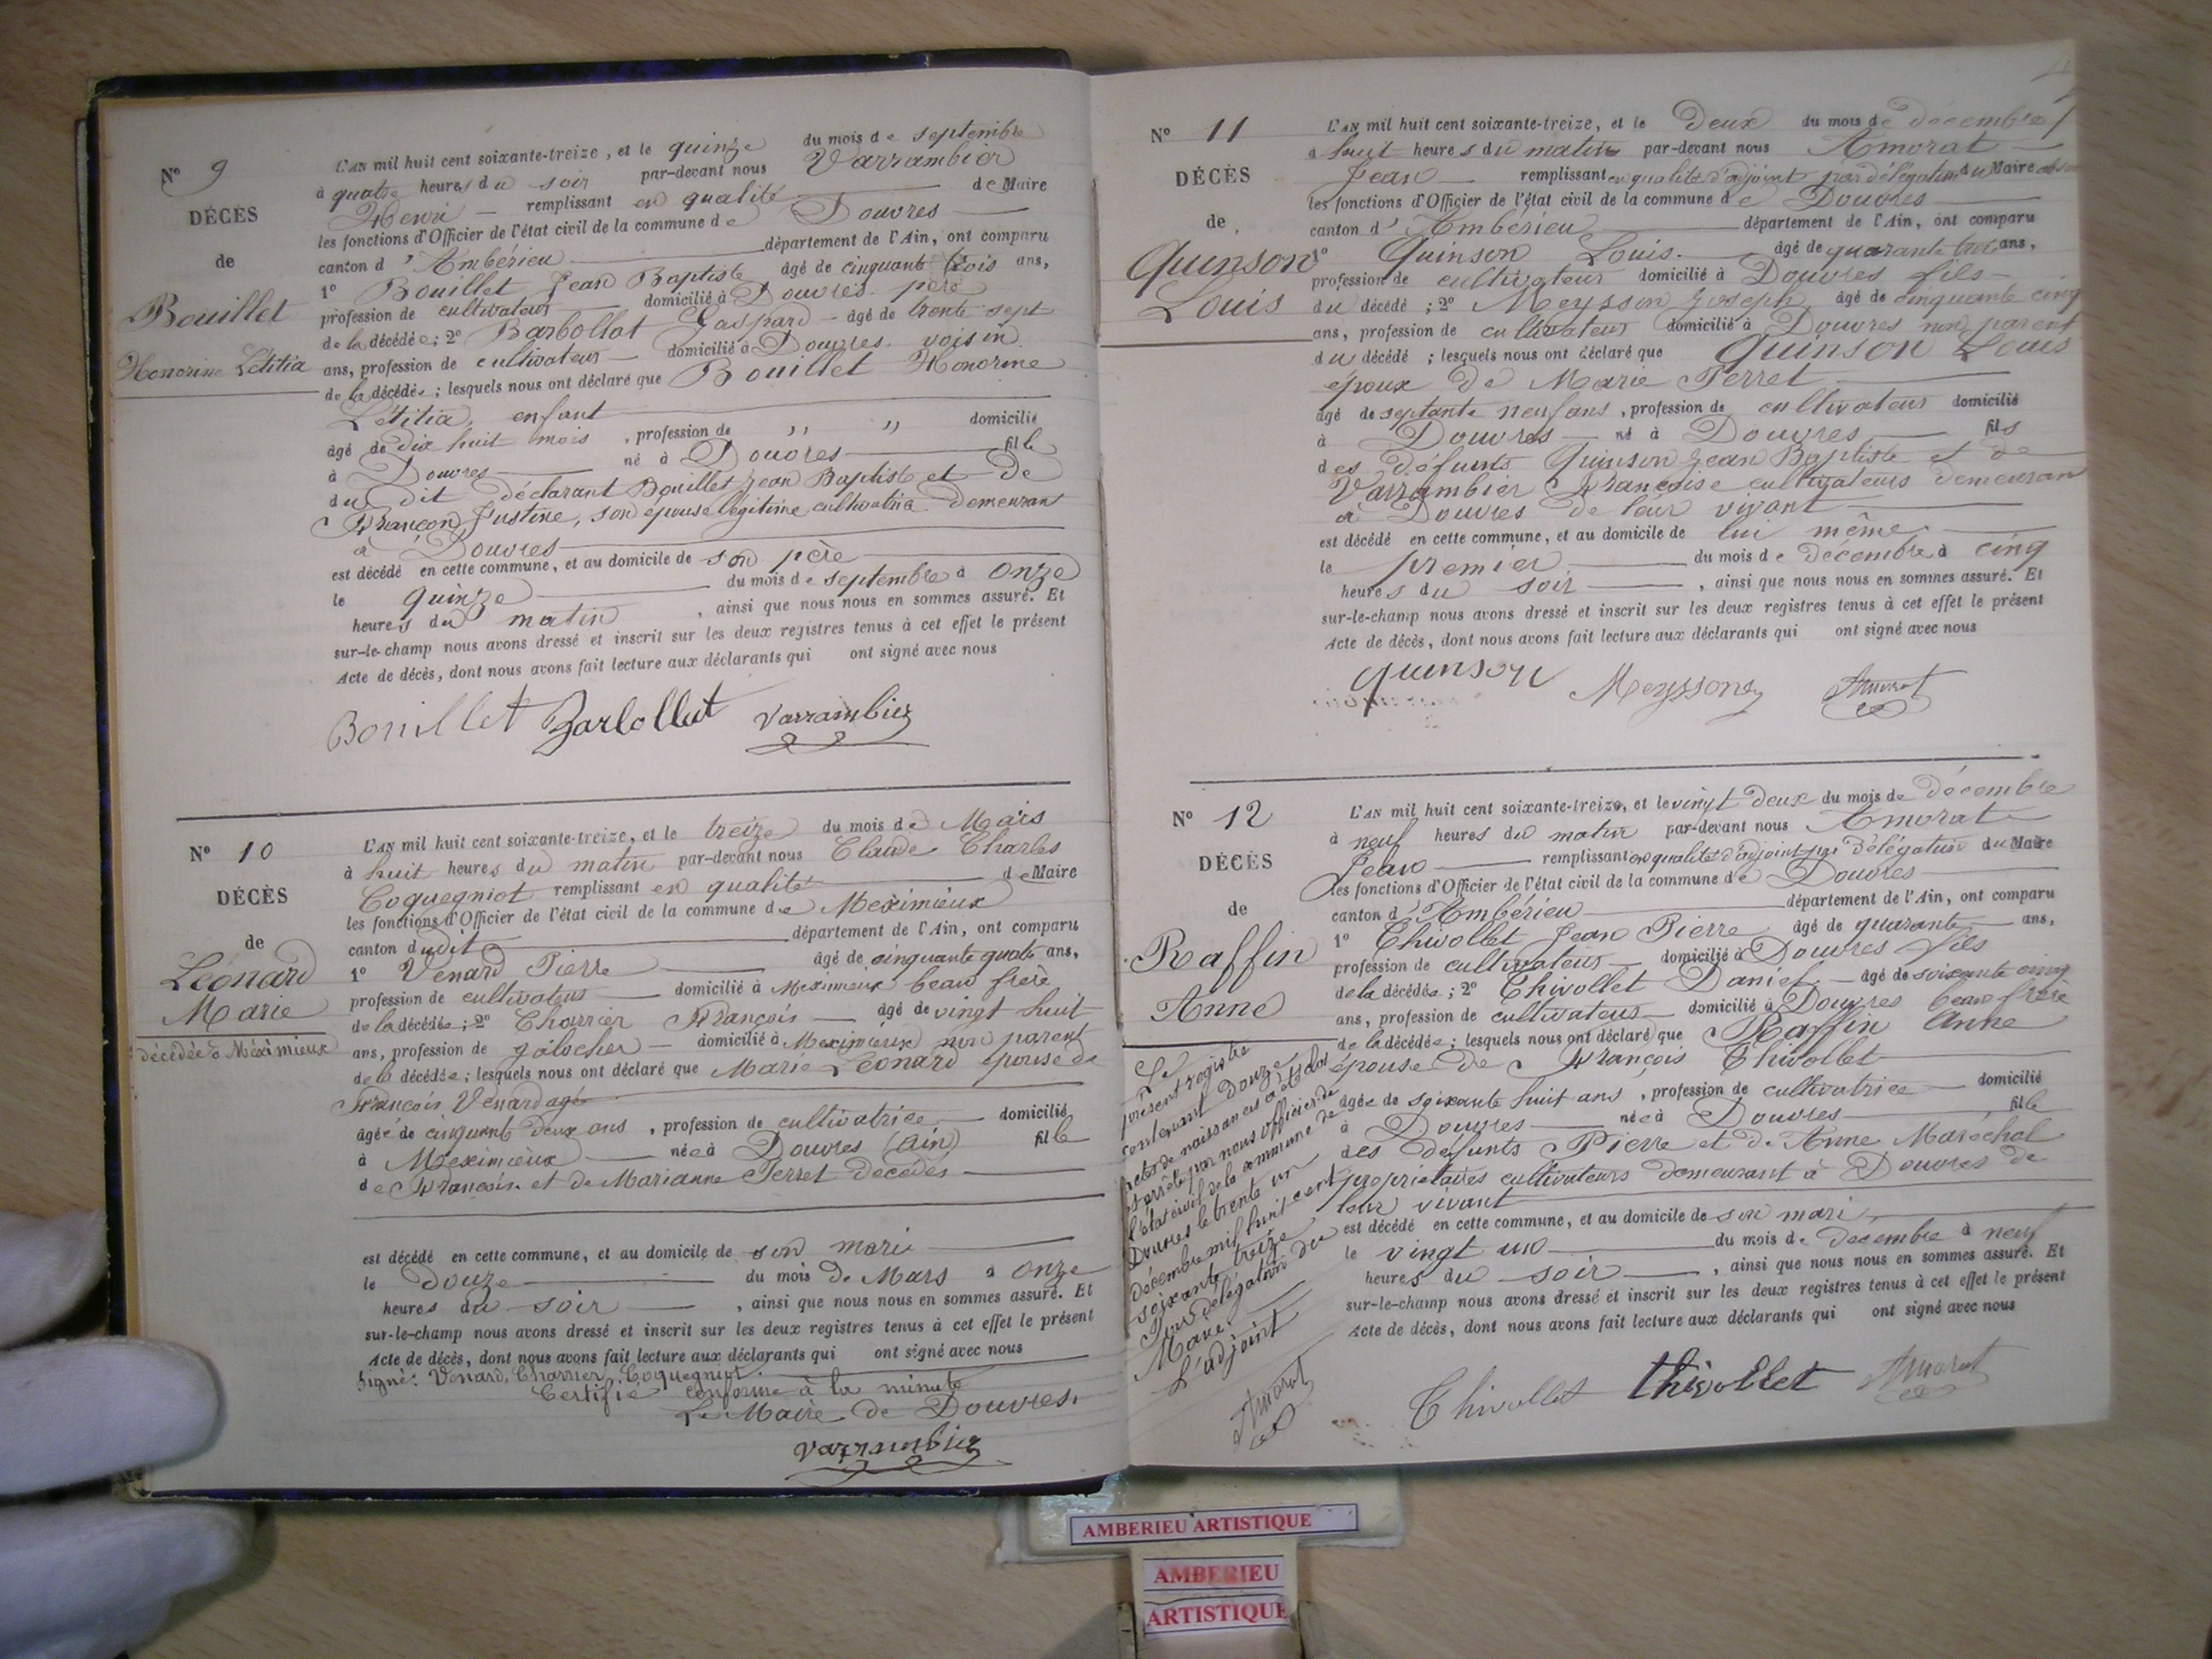 N° 9
DÉCÈS
de
Bouillet
Honorine Létitia
L'AN mil huit cent soixante-treize, et le quinze du mois de septembre
à quatre heures du soir par-devant nous Varrambier
Henri remplissant en qualité de Maire
les fonctions d'Officier de l'état civil de la commune de Douvres
canton d'Ambérieu département de l'Ain, ont comparu
1° Bouillet Jean Baptiste âgé de cinquante trois ans,
profession de cultivateur domicilié à Douvres père
de la décédée; 2° Barbollat Gaspard âgé de trente sept
ans, profession de cultivateur domicilié à Douvres voisin
de la décédée; lesquels nous ont déclaré que Bouillet Honorine
Létitia, enfant
âgé de dix huit mois, profession de " " domicilié
à Douvres né à Douvres fille
du dit déclarant Bouillet Jean Baptiste et de
Françon Justine, son épouse légitime cultivatrice demeurant
à Douvres
est décédé en cette commune, et au domicile de son père
le quinze du mois de septembre à onze
heures du matin, ainsi que nous nous en sommes assuré. Et
sur-le-champ nous avons dressé et inscrit sur les deux registres tenus à cet effet le présent
Acte de décès, dont nous avons fait lecture aux déclarants qui ont signé avec nous
Bouillet Barbollat Varrambier
N° 10
DÉCÈS
de
Léonard
Marie
décédée à Méximieux
L'AN mil huit cent soixante-treize, et le treize du mois de Mars
à huit heures du matin par-devant nous Claude Charles
Coquegniot remplissant en qualité de Maire
les fonctions d'Officier de l'état civil de la commune de Meximieux
canton dudit département de l'Ain, ont comparu
1° Venard Pierre âgé de cinquante quatre ans,
profession de cultivateur domicilié à Meximieux beau frère
de la décédée; 2° Charrier François âgé de vingt huit
ans, profession de galocher domicilié à Meximieux non parent
de la décédée; lesquels nous ont déclaré que Marie Léonard épouse de
François Venard agé
âgée de cinquante deux ans, profession de cultivatrice domicilié
à Meximieux née à Douvres (Ain) fille
de François et de Marianne Perret décédés
est décédé en cette commune, et au domicile de son mari
le douze du mois de Mars à onze
heures du soir, ainsi que nous nous en sommes assuré. Et
sur-le-champ nous avons dressé et inscrit sur les deux registres tenus à cet effet le présent
Acte de décès, dont nous avons fait lecture aux déclarants qui ont signé avec nous
Signé: Venard, Charrier, Coquegniot.
Certifié conforme à la minute
Le Maire de Douvres.
Varrambier
N° 11
DÉCÈS
de
Quinson
Louis
L'AN mil huit cent soixante-treize, et le Deux du mois de décembre
à huit heures du matin par-devant nous Amorat
Jean remplissant en qualité d'adjoint par délégation du Maire
les fonctions d'Officier de l'état civil de la commune de Douvres
canton d'Ambérieu département de l'Ain, ont comparu
1° Quinson Louis âgé de quarante trois ans,
profession de cultivateur domicilié à Douvres fils
du décédé; 2° Meysson Joseph âgé de cinquante cinq
ans, profession de cultivateur domicilié à Douvres non parent
du décédé; lesquels nous ont déclaré que Quinson Louis
époux de Marie Perret
âgé de septante neuf ans, profession de cultivateur domicilié
à Douvres né à Douvres fils
des défunts Quinson Jean Baptiste et de
Varrambier Françoise cultivateurs demeuran
à Douvres de leur vivant
est décédé en cette commune, et au domicile de lui même
le premier du mois de décembre à cinq
heures du soir, ainsi que nous nous en sommes assuré. Et
sur-le-champ nous avons dressé et inscrit sur les deux registres tenus à cet effet le présent
Acte de décès, dont nous avons fait lecture aux déclarants qui ont signé avec nous
quinson Meysson Amorat
N° 12
DÉCÈS
de
Raffin
Anne
L'AN mil huit cent soixante-treize, et le vingt deux du mois de décembre
à neuf heures du matin par-devant nous Amorat
Jean remplissant en qualité d'adjoint par délégation du Maire
les fonctions d'Officier de l'état civil de la commune de Douvres
canton d'Ambérieu département de l'Ain, ont comparu
1° Thivollet Jean Pierre âgé de quarante ans,
profession de cultivateur domicilié à Douvres fils
de la décédée; 2° Thivollet Daniel âgé de soixante cinq
ans, profession de cultivateur domicilié à Douvres beau frère
de la décédée; lesquels nous ont déclaré que Raffin Anne
épouse de François Thivollet
âgée de soixante huit ans, profession de cultivatrice domicilié
à Douvres née à Douvres fille
des défunts Pierre et de Anne Maréchal
propriétaires cultivateurs demeurant à Douvres de
leur vivant
est décédé en cette commune, et au domicile de son mari
le vingt un du mois de décembre à neuf
heures du soir, ainsi que nous nous en sommes assuré. Et
sur-le-champ nous avons dressé et inscrit sur les deux registres tenus à cet effet le présent
Acte de décès, dont nous avons fait lecture aux déclarants qui ont signé avec nous
Thivollet thivollet Amorat
Le
présent registre
contenant douze
actes de naissances a été clos
et arrêté par nous officier de
l'état civil de la commune de
Douvres le trente un
décembre mil huit cent
soixante treize
Par délégation du
Maire
L'adjoint
Amorat
AMBERIEU ARTISTIQUE
AMBERIEU
ARTISTIQUE